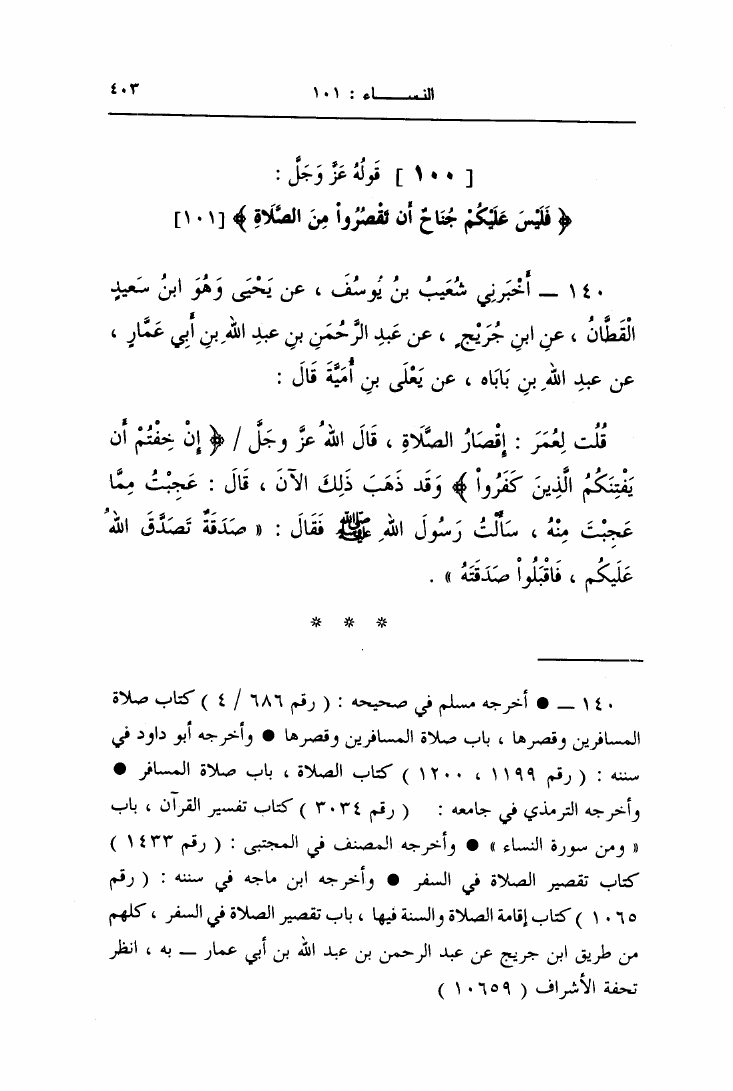 النساء : ١٠١ ٤٠٣
[ ١٠٠ ] قَولُهُ عَزَّ وَجَلَّ :
﴿ فَلَيْسَ عَلَيْكُمْ جُنَاحٌ أَن تَقْصُرُواْ مِنَ الصَّلَاةِ ﴾ [١٠١]
١٤٠ ــ أَخْبَرنِي شُعَيبُ بنُ يُوسُفَ ، عن يَحْيَى وَهُوَ ابنُ سَعيدٍ
القَطَّانُ ، عنِ ابنِ جُرَيْجٍ ، عن عَبدِ الرَّحْمَنِ بنِ عبدِ اللهِ بنِ أَبِي عَمَّارٍ ،
عن عبدِ اللهِ بنِ بَابَاه ، عن يَعْلَى بنِ أُمَيَّةَ قَالَ :
قُلْت لِعُمَرَ : إِقْصَارُ الصَّلَاةِ ، قَالَ اللهُ عزَّ وجَلَّ / ﴿ إِنْ خِفْتُمْ أَن
يَفْتِنَكُمُ الَّذِينَ كَفَرُواْ ﴾ وَقَد ذَهَبَ ذَلِكَ الآنَ ، قَالَ : عَجِبْتُ مِمَّا
عَجِبْتَ مِنْهُ ، سَأَلْتُ رَسُولَ اللهِ ﷺ فَقَالَ : « صَدَقَةٌ تَصَدَّقَ اللهُ
عَلَيكُم ، فَاقْبَلُواْ صَدَقَتَهُ » .
* * *
١٤٠ ــ ● أخرجه مسلم في صحيحه : ( رقم ٦٨٦ / ٤ ) كتاب صلاة
المسافرين وقصرها ، باب صلاة المسافرين وقصرها ● وأخرجه أبو داود في
سننه : ( رقم ١١٩٩ ، ١٢٠٠ ) كتاب الصلاة ، باب صلاة المسافر ●
وأخرجه الترمذي في جامعه : ( رقم ٣٠٣٤ ) كتاب تفسير القرآن ، باب
« ومن سورة النساء » ● وأخرجه المصنف في المجتبى : ( رقم ١٤٣٣ )
كتاب تقصير الصلاة في السفر ● وأخرجه ابن ماجه في سننه : ( رقم
١٠٦٥ ) كتاب إقامة الصلاة والسنة فيها ، باب تقصير الصلاة في السفر ، كلهم
من طريق ابن جريج عن عبد الرحمن بن عبد الله بن أبي عمار ــ به ، انظر
تحفة الأشراف ( ١٠٦٥٩ )